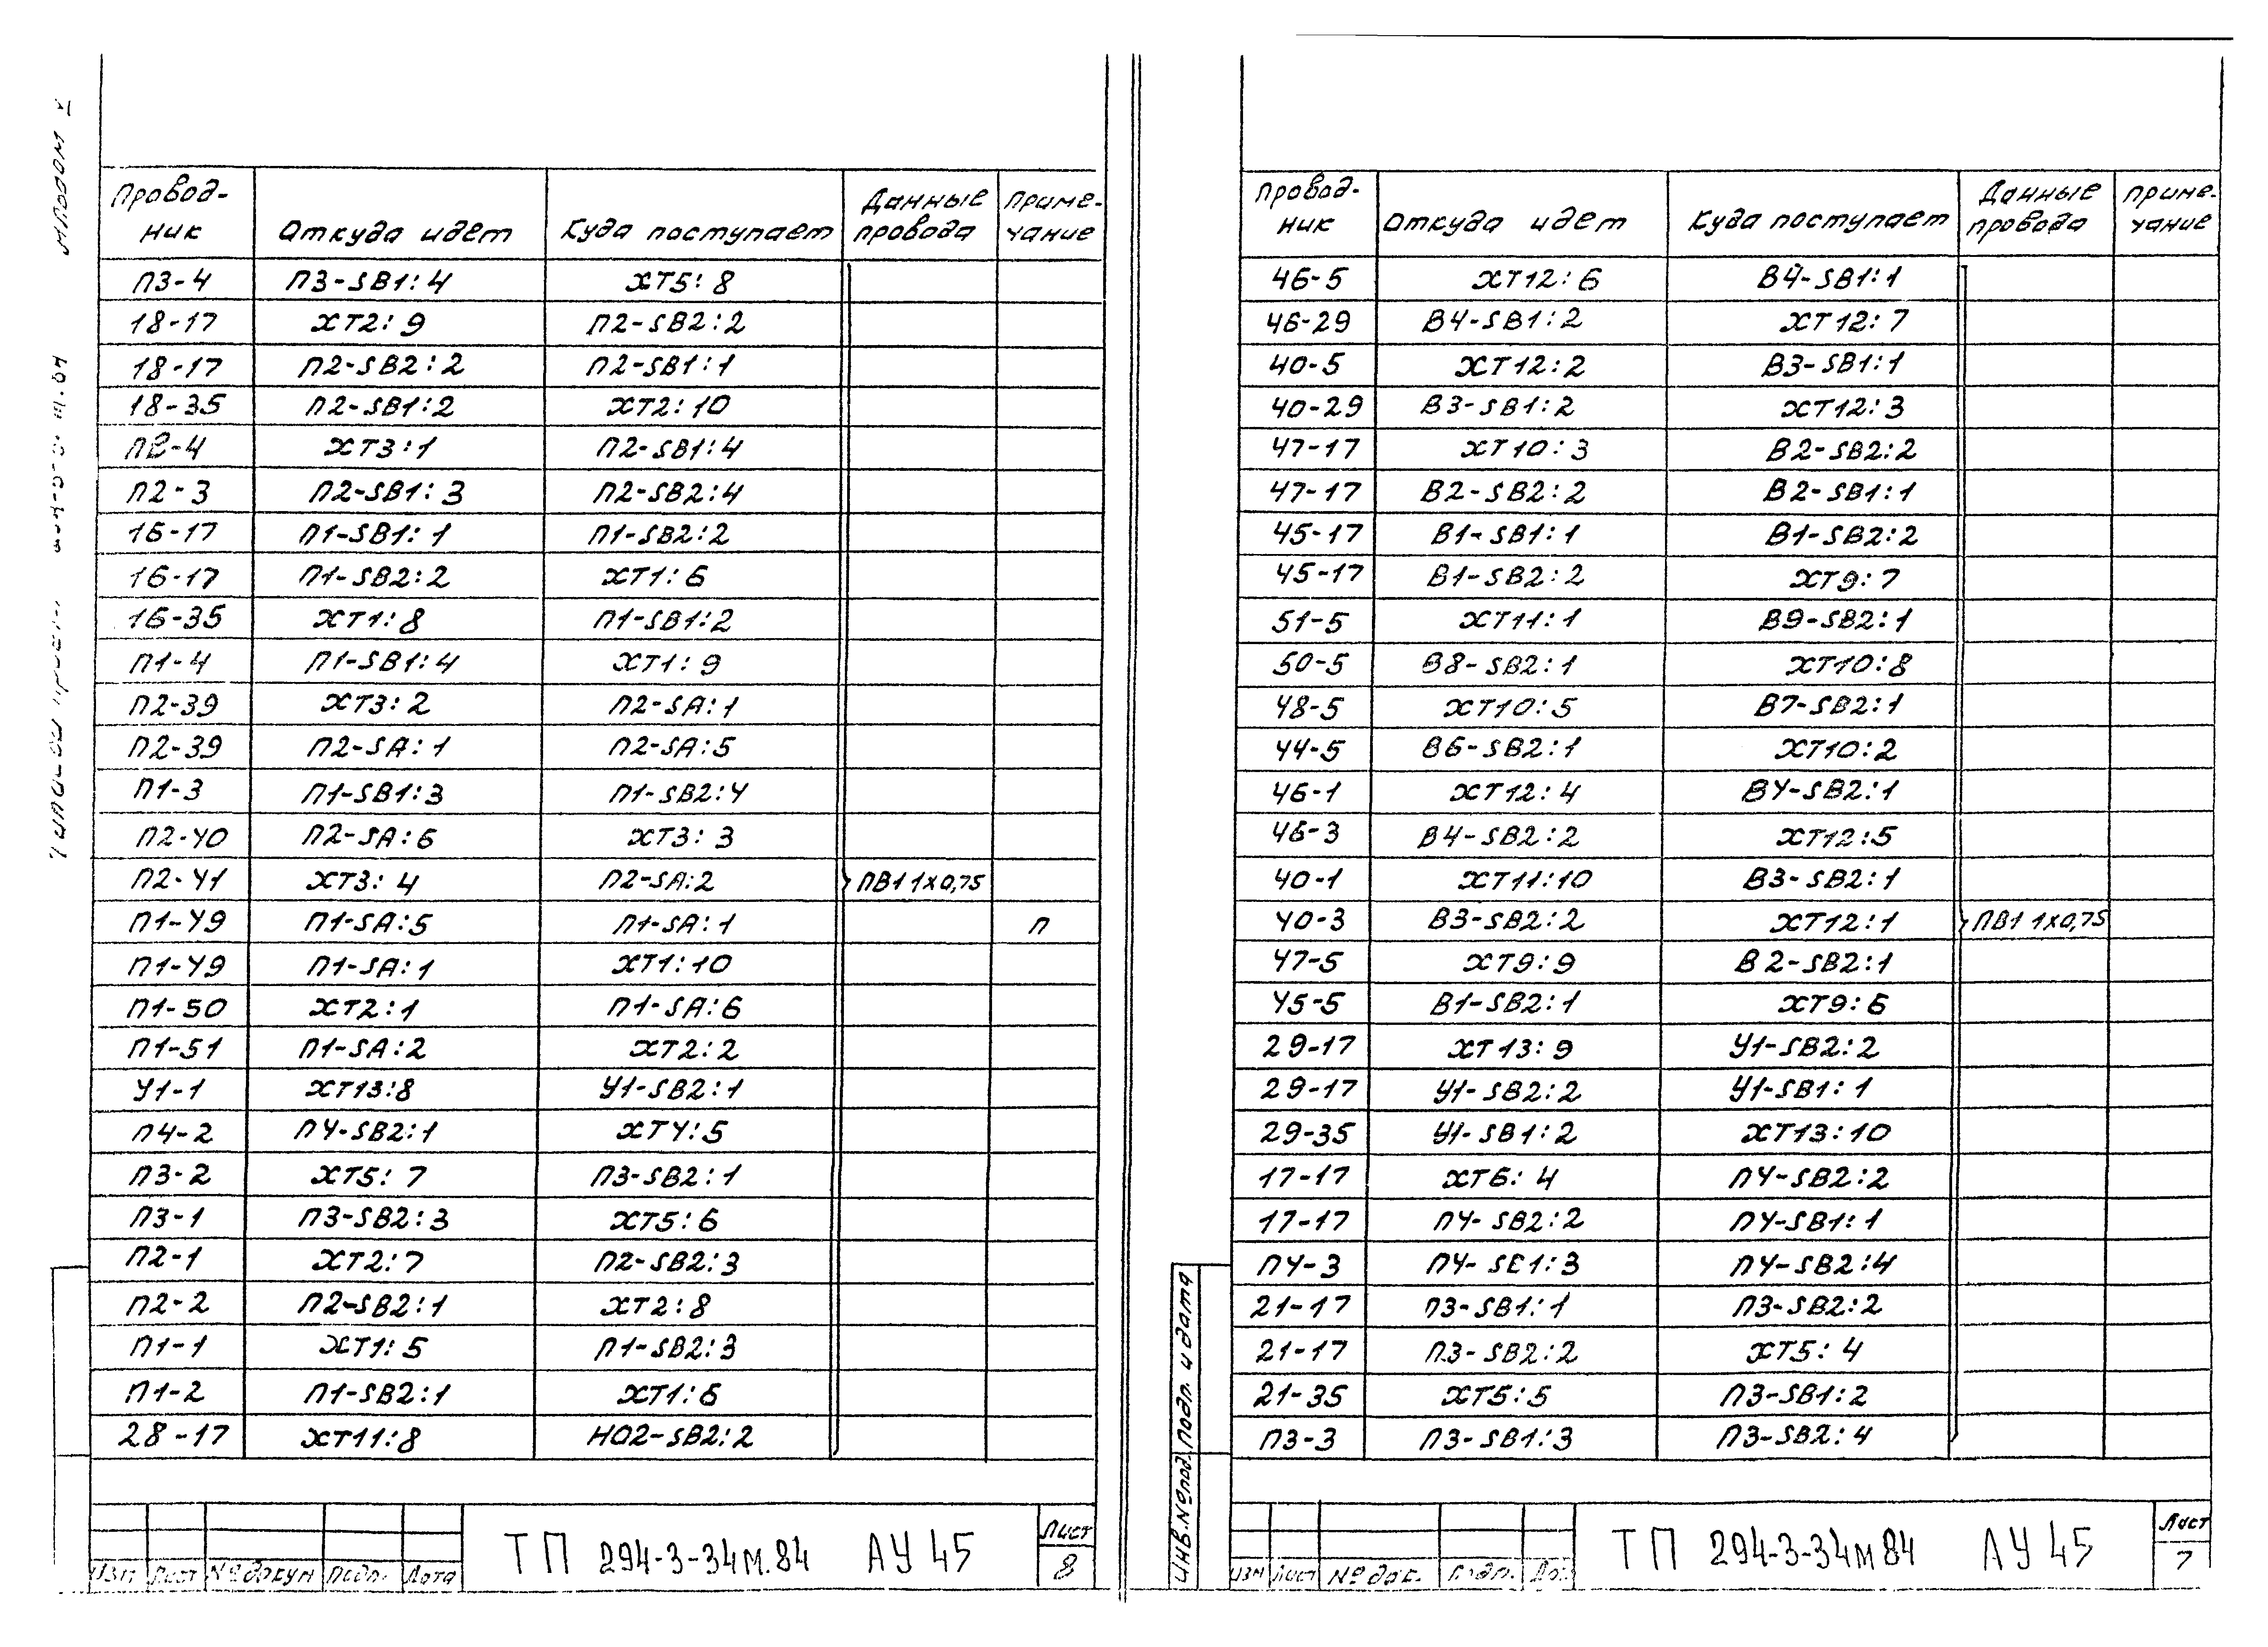 Провод-
ник Откуда идет Куда поступает Данные провода Приме-
чание
П3-4 П3-SB1:4 XT5:8
18-17 XT2:9 П2-SB2:2
18-17 П2-SB2:2 П2-SB1:1
18-35 П2-SB1:2 XT2:10
П2-4 XT3:1 П2-SB1:4
П2-3 П2-SB1:3 П2-SB2:4
16-17 П1-SB1:1 П1-SB2:2
16-17 П1-SB2:2 XT1:6
16-35 XT1:8 П1-SB1:2
П1-4 П1-SB1:4 XT1:9
П2-39 XT3:2 П2-SA:1
П2-39 П2-SA:1 П2-SA:5
П1-3 П1-SB1:3 П1-SB2:4
П2-40 П2-SA:6 XT3:3
П2-41 XT3:4 П2-SA:2 ПВ1 1х0,75
П1-49 П1-SA:5 П1-SA:1 П
П1-49 П1-SA:1 XT1:10
П1-50 XT2:1 П1-SA:6
П1-51 П1-SA:2 XT2:2
У1-1 XT13:8 У1-SB2:1
П4-2 П4-SB2:1 XT4:5
П3-2 XT5:7 П3-SB2:1
П3-1 П3-SB2:3 XT5:6
П2-1 XT2:7 П2-SB2:3
П2-2 П2-SB2:1 XT2:8
П1-1 XT1:5 П1-SB2:3
П1-2 П1-SB2:1 XT1:6
28-17 XT11:8 НО2-SB2:2
Изм Лист № докум Подп. Дата
ТП 294-3-34м.84 АУ 45
Лист
8
Провод-
ник Откуда идет Куда поступает Данные провода Приме-
чание
46-5 XT12:6 В4-SB1:1
46-29 В4-SB1:2 XT12:7
40-5 XT12:2 В3-SB1:1
40-29 В3-SB1:2 XT12:3
47-17 XT10:3 В2-SB2:2
47-17 В2-SB2:2 В2-SB1:1
45-17 В1-SB1:1 В1-SB2:2
45-17 В1-SB2:2 XT9:7
51-5 XT11:1 В9-SB2:1
50-5 В8-SB2:1 XT10:8
48-5 XT10:5 В7-SB2:1
44-5 В6-SB2:1 XT10:2
46-1 XT12:4 В4-SB2:1
46-3 В4-SB2:2 XT12:5
40-1 XT11:10 В3-SB2:1
40-3 В3-SB2:2 XT12:1 ПВ1 1х0,75
47-5 XT9:9 В2-SB2:1
45-5 В1-SB2:1 XT9:6
29-17 XT13:9 У1-SB2:2
29-17 У1-SB2:2 У1-SB1:1
29-35 У1-SB1:2 XT13:10
17-17 XT6:4 П4-SB2:2
17-17 П4-SB2:2 П4-SB1:1
П4-3 П4-SB1:3 П4-SB2:4
21-17 П3-SB1:1 П3-SB2:2
21-17 П3-SB2:2 XT5:4
21-35 XT5:5 П3-SB1:2
П3-3 П3-SB1:3 П3-SB2:4
Инв.№подл. Подп. и дата
Изм Лист № док. Подп.
ТП 294-3-34м84 АУ 45
Лист
7